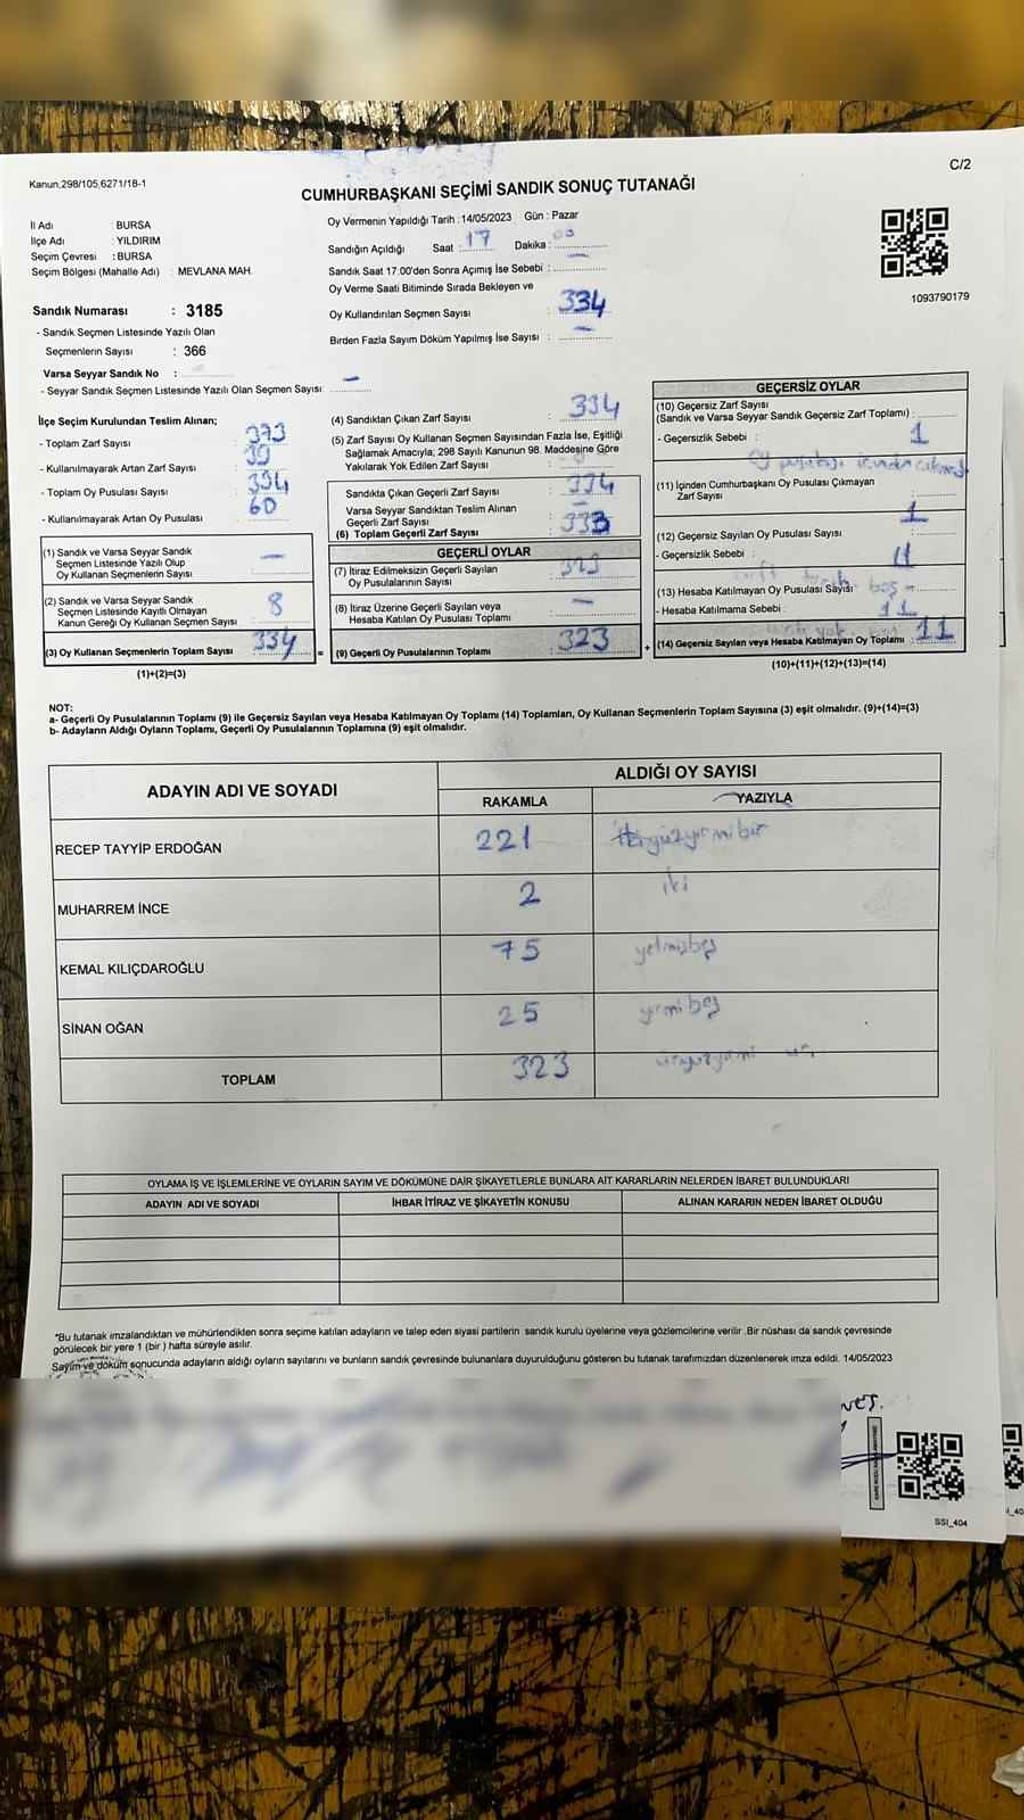 C/2
Kanun,298/105,6271/18-1
CUMHURBAŞKANI SEÇİMİ SANDIK SONUÇ TUTANAĞI
İl Adı : BURSA
İlçe Adı : YILDIRIM
Seçim Çevresi : BURSA
Seçim Bölgesi (Mahalle Adı) : MEVLANA MAH.
Oy Vermenin Yapıldığı Tarih : 14/05/2023 Gün : Pazar
Sandığın Açıldığı Saat : 17 Dakika : 00
Sandık Saat 17.00'den Sonra Açımış İse Sebebi :
Oy Verme Saati Bitiminde Sırada Bekleyen ve
Oy Kullandırılan Seçmen Sayısı : 334
Birden Fazla Sayım Döküm Yapılmış İse Sayısı : –
1093790179
Sandık Numarası : 3185
- Sandık Seçmen Listesinde Yazılı Olan
Seçmenlerin Sayısı : 366
Varsa Seyyar Sandık No :
- Seyyar Sandık Seçmen Listesinde Yazılı Olan Seçmen Sayısı: –
İlçe Seçim Kurulundan Teslim Alınan;
- Toplam Zarf Sayısı : 373
- Kullanılmayarak Artan Zarf Sayısı : 39
- Toplam Oy Pusulası Sayısı : 394
- Kullanılmayarak Artan Oy Pusulası : 60
(1) Sandık ve Varsa Seyyar Sandık
Seçmen Listesinde Yazılı Olup
Oy Kullanan Seçmenlerin Sayısı : –
(2) Sandık ve Varsa Seyyar Sandık
Seçmen Listesinde Kayıtlı Olmayan
Kanun Gereği Oy Kullanan Seçmen Sayısı : 8
(3) Oy Kullanan Seçmenlerin Toplam Sayısı 334 =
(1)+(2)=(3)
(4) Sandıktan Çıkan Zarf Sayısı : 334
(5) Zarf Sayısı Oy Kullanan Seçmen Sayısından Fazla İse, Eşitliği
Sağlamak Amacıyla; 298 Sayılı Kanunun 98. Maddesine Göre
Yakılarak Yok Edilen Zarf Sayısı :
Sandıkta Çıkan Geçerli Zarf Sayısı : 334
Varsa Seyyar Sandıktan Teslim Alınan
Geçerli Zarf Sayısı : –
(6) Toplam Geçerli Zarf Sayısı : 333
GEÇERLİ OYLAR
(7) İtiraz Edilmeksizin Geçerli Sayılan
Oy Pusulalarının Sayısı : 323
(8) İtiraz Üzerine Geçerli Sayılan veya
Hesaba Katılan Oy Pusulası Toplamı : –
(9) Geçerli Oy Pusulalarının Toplamı : 323 +
GEÇERSİZ OYLAR
(10) Geçersiz Zarf Sayısı
(Sandık ve Varsa Seyyar Sandık Geçersiz Zarf Toplamı) :
- Geçersizlik Sebebi : 1
(11) İçinden Cumhurbaşkanı Oy Pusulası Çıkmayan
Zarf Sayısı :
(12) Geçersiz Sayılan Oy Pusulası Sayısı : 1
- Geçersizlik Sebebi : 11
(13) Hesaba Katılmayan Oy Pusulası Sayısı : boş –
- Hesaba Katılmama Sebebi : 11
(14) Geçersiz Sayılan veya Hesaba Katılmayan Oy Toplamı : 11
(10)+(11)+(12)+(13)=(14)
NOT:
a- Geçerli Oy Pusulalarının Toplamı (9) ile Geçersiz Sayılan veya Hesaba Katılmayan Oy Toplamı (14) Toplamları, Oy Kullanan Seçmenlerin Toplam Sayısına (3) eşit olmalıdır. (9)+(14)=(3)
b- Adayların Aldığı Oyların Toplamı, Geçerli Oy Pusulalarının Toplamına (9) eşit olmalıdır.
ADAYIN ADI VE SOYADI
ALDIĞI OY SAYISI
RAKAMLA YAZIYLA
RECEP TAYYİP ERDOĞAN 221 ikiyüzyirmibir
MUHARREM İNCE 2 iki
KEMAL KILIÇDAROĞLU 75 yetmişbeş
SİNAN OĞAN 25 yirmibeş
TOPLAM 323
OYLAMA İŞ VE İŞLEMLERİNE VE OYLARIN SAYIM VE DÖKÜMÜNE DAİR ŞİKAYETLERLE BUNLARA AİT KARARLARIN NELERDEN İBARET BULUNDUKLARI
ADAYIN ADI VE SOYADI İHBAR İTİRAZ VE ŞİKAYETİN KONUSU ALINAN KARARIN NEDEN İBARET OLDUĞU
*Bu tutanak imzalandıktan ve mühürlendikten sonra seçime katılan adayların ve talep eden siyasi partilerin sandık kurulu üyelerine veya gözlemcilerine verilir .Bir nüshası da sandık çevresinde
görülecek bir yere 1 (bir ) hafta süreyle asılır.
Sayım ve döküm sonucunda adayların aldığı oyların sayılarını ve bunların sandık çevresinde bulunanlara duyurulduğunu gösteren bu tutanak tarafımızdan düzenlenerek imza edildi. 14/05/2023
SSI_404